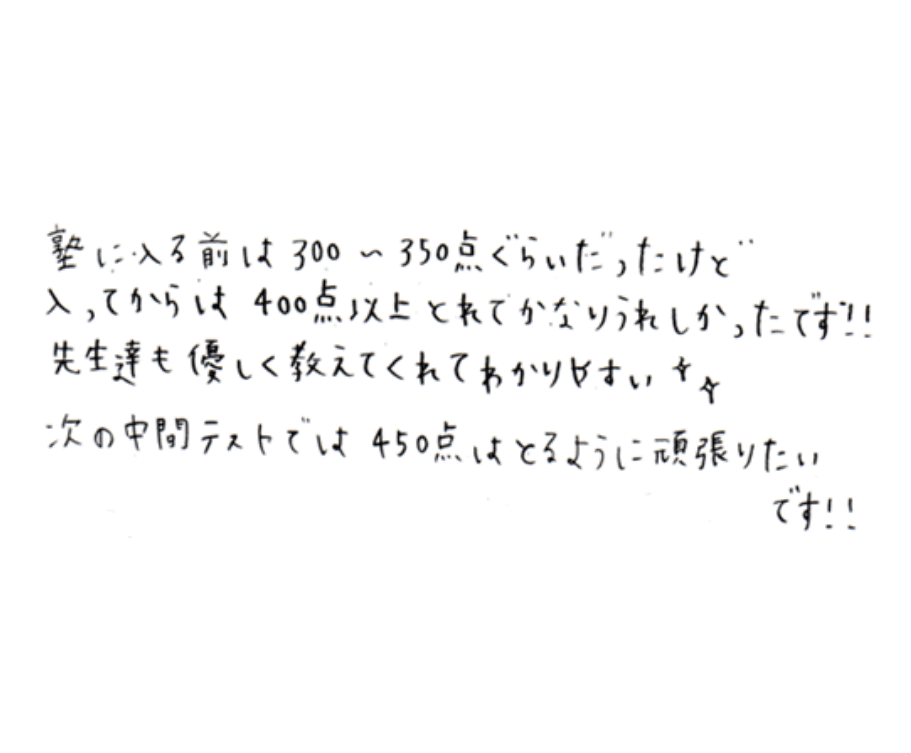 塾に入る前は300～350点ぐらいだったけど
入ってからは400点以上とれてかなりうれしかったです!!
先生達も優しく教えてくれてわかりやすい☆☆
次の中間テストでは450点はとるように頑張りたい
です!!